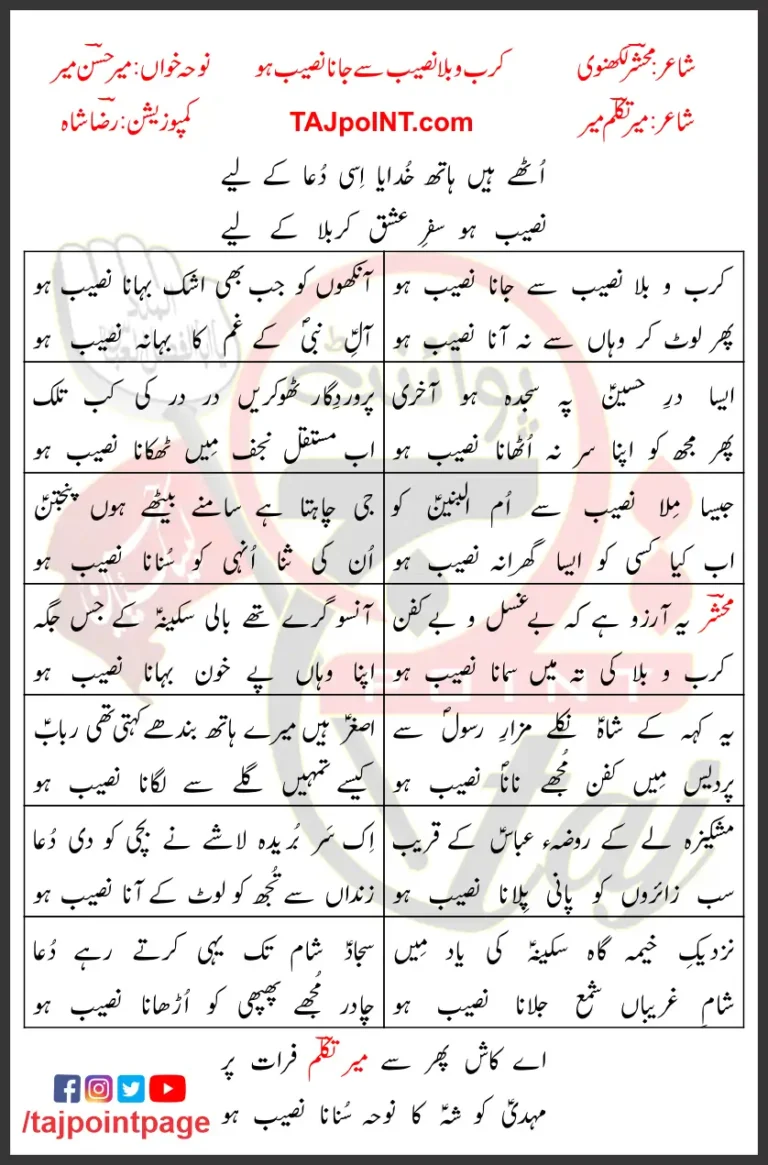 شاعر: محشرؔ لکھنوی
کرب و بلا نصیب سے جانا نصیب ہو
نوحہ خواں: میر حسن میر
شاعر: میر تکلمؔ میر
TAJpoINT.com
کمپوزیشن: رضاؔ شاہ
اُٹھے ہیں ہاتھ خُدایا اِسی دُعا کے لیے
نصیب ہو سفرِ عشق کربلا کے لیے
کرب و بلا نصیب سے جانا نصیب ہو
پھر لوٹ کر وہاں سے نہ آنا نصیب ہو
آنکھوں کو جب بھی اشک بہانا نصیب ہو
آلِ نبیؐ کے غم کا بہانہ نصیب ہو
ایسا درِ حسینؑ پہ سجدہ ہو آخری
پھر مجھ کو اپنا سر نہ اُٹھانا نصیب ہو
پروردِگار ٹھوکریں در در کی کب تلک
اب مستقل نجف مِیں ٹھکانا نصیب ہو
جیسا مِلا نصیب سے اُم البنینؑ کو
اب کیا کسی کو ایسا گھرانہ نصیب ہو
جی چاہتا ہے سامنے بیٹھے ہوں پنجتنؑ
اُن کی ثنا اُنہی کو سُنانا نصیب ہو
محشرؔ یہ آرزو ہے کہ بے غسل و بے کفن
کرب و بلا کی تہ میں سمانا نصیب ہو
آنسو گرے تھے بالی سکینہؑ کے جس جگہ
اپنا وہاں پے خون بہانا نصیب ہو
یہ کہہ کے شاہؑ نکلے مزارِ رسولؐ سے
پردیس مِیں کفن مُجھے ناناؐ نصیب ہو
اصغرؑ ہیں میرے ہاتھ بندھے کہتی تھی ربابؑ
کیسے تمہیں گلے سے لگانا نصیب ہو
مشکیزہ لے کے روضہء عباسؑ کے قریب
سب زائروں کو پانی پِلانا نصیب ہو
اِک سَر بُریدہ لاشے نے بچی کو دی دُعا
زنداں سے تُجھ کو لوٹ کے آنا نصیب ہو
نزدیکِ خیمہ گاہ سکینہؑ کی یاد مِیں
شامِ غریباں شمع جلانا نصیب ہو
سجادؑ شام تک یہی کرتے رہے دُعا
چادر مُجھے پھپھی کو اُڑھانا نصیب ہو
اے کاش پھر سے میر تکلمؔ فرات پر
مہدیؑ کو شہؑ کا نوحہ سُنانا نصیب ہو
/tajpointpage
پوائنٹ
POINT
taj